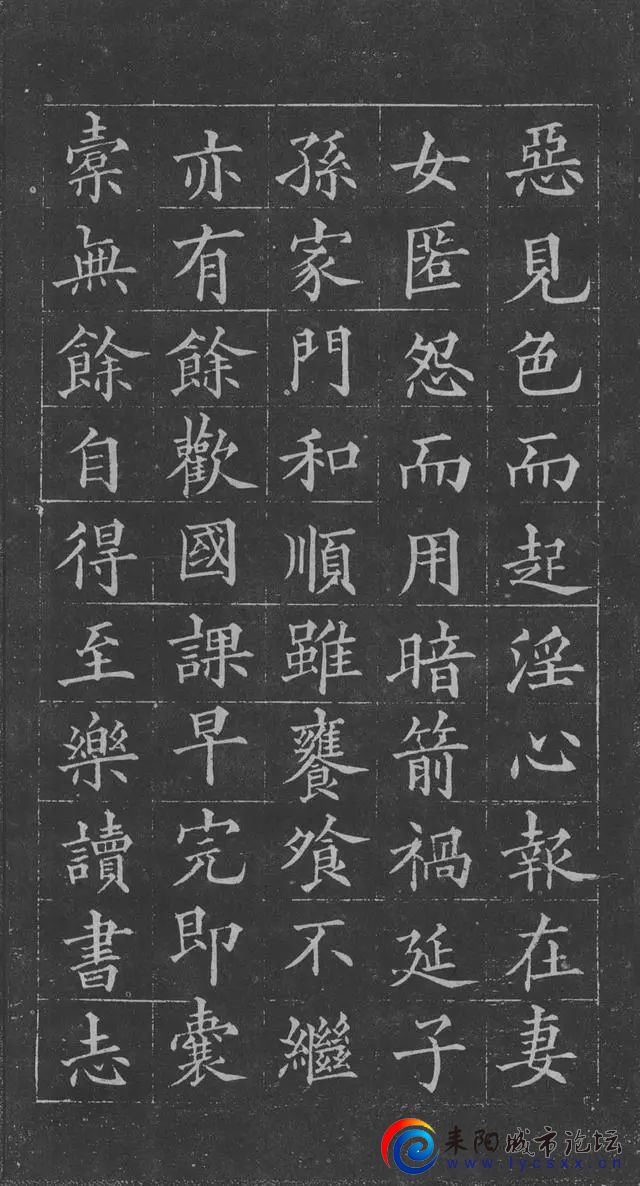 惡見色而起淫心報在妻
女匿怨而用暗箭禍延子
孫家門和順雖饔飧不繼
亦有餘歡國課早完即囊
橐無餘自得至樂讀書志
耒阳城市论坛
www.lycsxx.cn